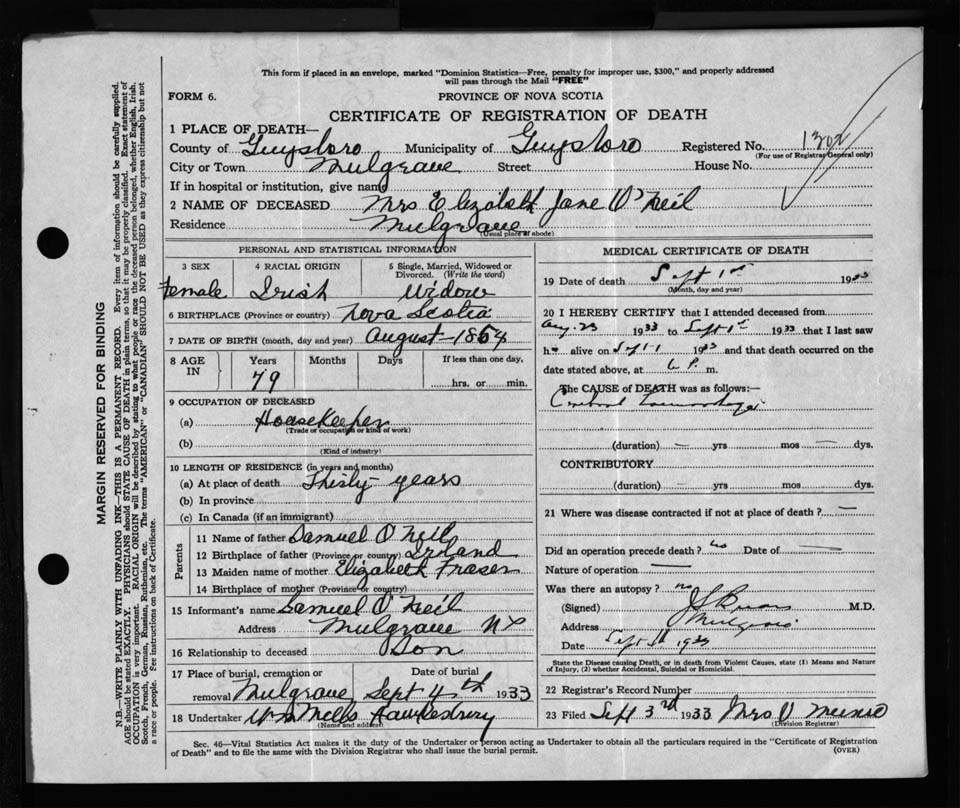 This form if placed in an envelope, marked "Dominion Statistics—Free, penalty for improper use, $300," and properly addressed
will pass through the Mail "FREE"
FORM 6.
PROVINCE OF NOVA SCOTIA
CERTIFICATE OF REGISTRATION OF DEATH
1 PLACE OF DEATH—
County of Guysboro Municipality of Guysboro Registered No. 1302
(For use of Registrar General only)
City or Town Mulgrave Street House No.
If in hospital or institution, give name
2 NAME OF DECEASED Mrs Elizabeth Jane O'Neil
Residence Mulgrave
(Usual place of abode)
PERSONAL AND STATISTICAL INFORMATION
3 SEX 4 RACIAL ORIGIN 5 Single, Married, Widowed or Divorced. (Write the word)
Female Irish Widow
6 BIRTHPLACE (Province or country) Nova Scotia
7 DATE OF BIRTH (month, day and year) August-1864
8 AGE IN Years Months Days If less than one day,
79 hrs. or min.
9 OCCUPATION OF DECEASED
(a) Housekeeper
(Trade or occupation or kind of work)
(b)
(Kind of industry)
10 LENGTH OF RESIDENCE (in years and months)
(a) At place of death Thirty-years
(b) In province
(c) In Canada (if an immigrant)
Parents
11 Name of father Samuel O'Neil
12 Birthplace of father (Province or country) Ireland
13 Maiden name of mother Elizabeth Fraser
14 Birthplace of mother (Province or country)
15 Informant's name Samuel O'Neil
Address Mulgrave NS
16 Relationship to deceased Son
17 Place of burial, cremation or removal Mulgrave Date of burial Sept 4th 1933
18 Undertaker Wm Mills Hawkesbury
(Name and address)
MEDICAL CERTIFICATE OF DEATH
19 Date of death Sept 1st 1933
(Month, day and year)
20 I HEREBY CERTIFY that I attended deceased from
Aug. 23 1933 to Sept 1st 1933 that I last saw
h alive on Sept 1 1933 and that death occurred on the
date stated above, at 6 P. m.
The CAUSE of DEATH was as follows:—
Cerebral haemorrhage
(duration) — yrs mos — dys.
CONTRIBUTORY
(duration) — yrs mos — dys.
21 Where was disease contracted if not at place of death? —
Did an operation precede death? no Date of —
Nature of operation —
Was there an autopsy? no
(Signed) M.D.
Address Mulgrave
Date Sept 1933
State the Disease causing Death, or in death from Violent Causes, state (1) Means and Nature
of Injury, (2) whether Accidental, Suicidal or Homicidal.
22 Registrar's Record Number
23 Filed Sept 3rd 1933 Mrs O
(Division Registrar)
Sec. 46—Vital Statistics Act makes it the duty of the Undertaker or person acting as Undertaker to obtain all the particulars required in the "Certificate of Registration
of Death" and to file the same with the Division Registrar who shall issue the burial permit.
(OVER)
MARGIN RESERVED FOR BINDING
N.B.—WRITE PLAINLY WITH UNFADING INK—THIS IS A PERMANENT RECORD. Every item of information should be carefully supplied.
AGE should be stated EXACTLY. PHYSICIANS should STATE CAUSE OF DEATH in plain terms, so that it may be properly classified. Exact statement of
OCCUPATION is very important. RACIAL ORIGIN will be described by stating to what people or race the deceased person belonged, whether English, Irish,
Scotch, French, German, Russian, Ruthenian, etc. The terms "AMERICAN" or "CANADIAN" SHOULD NOT BE USED as they express citizenship but not
a race or people. See instructions on back of Certificate.